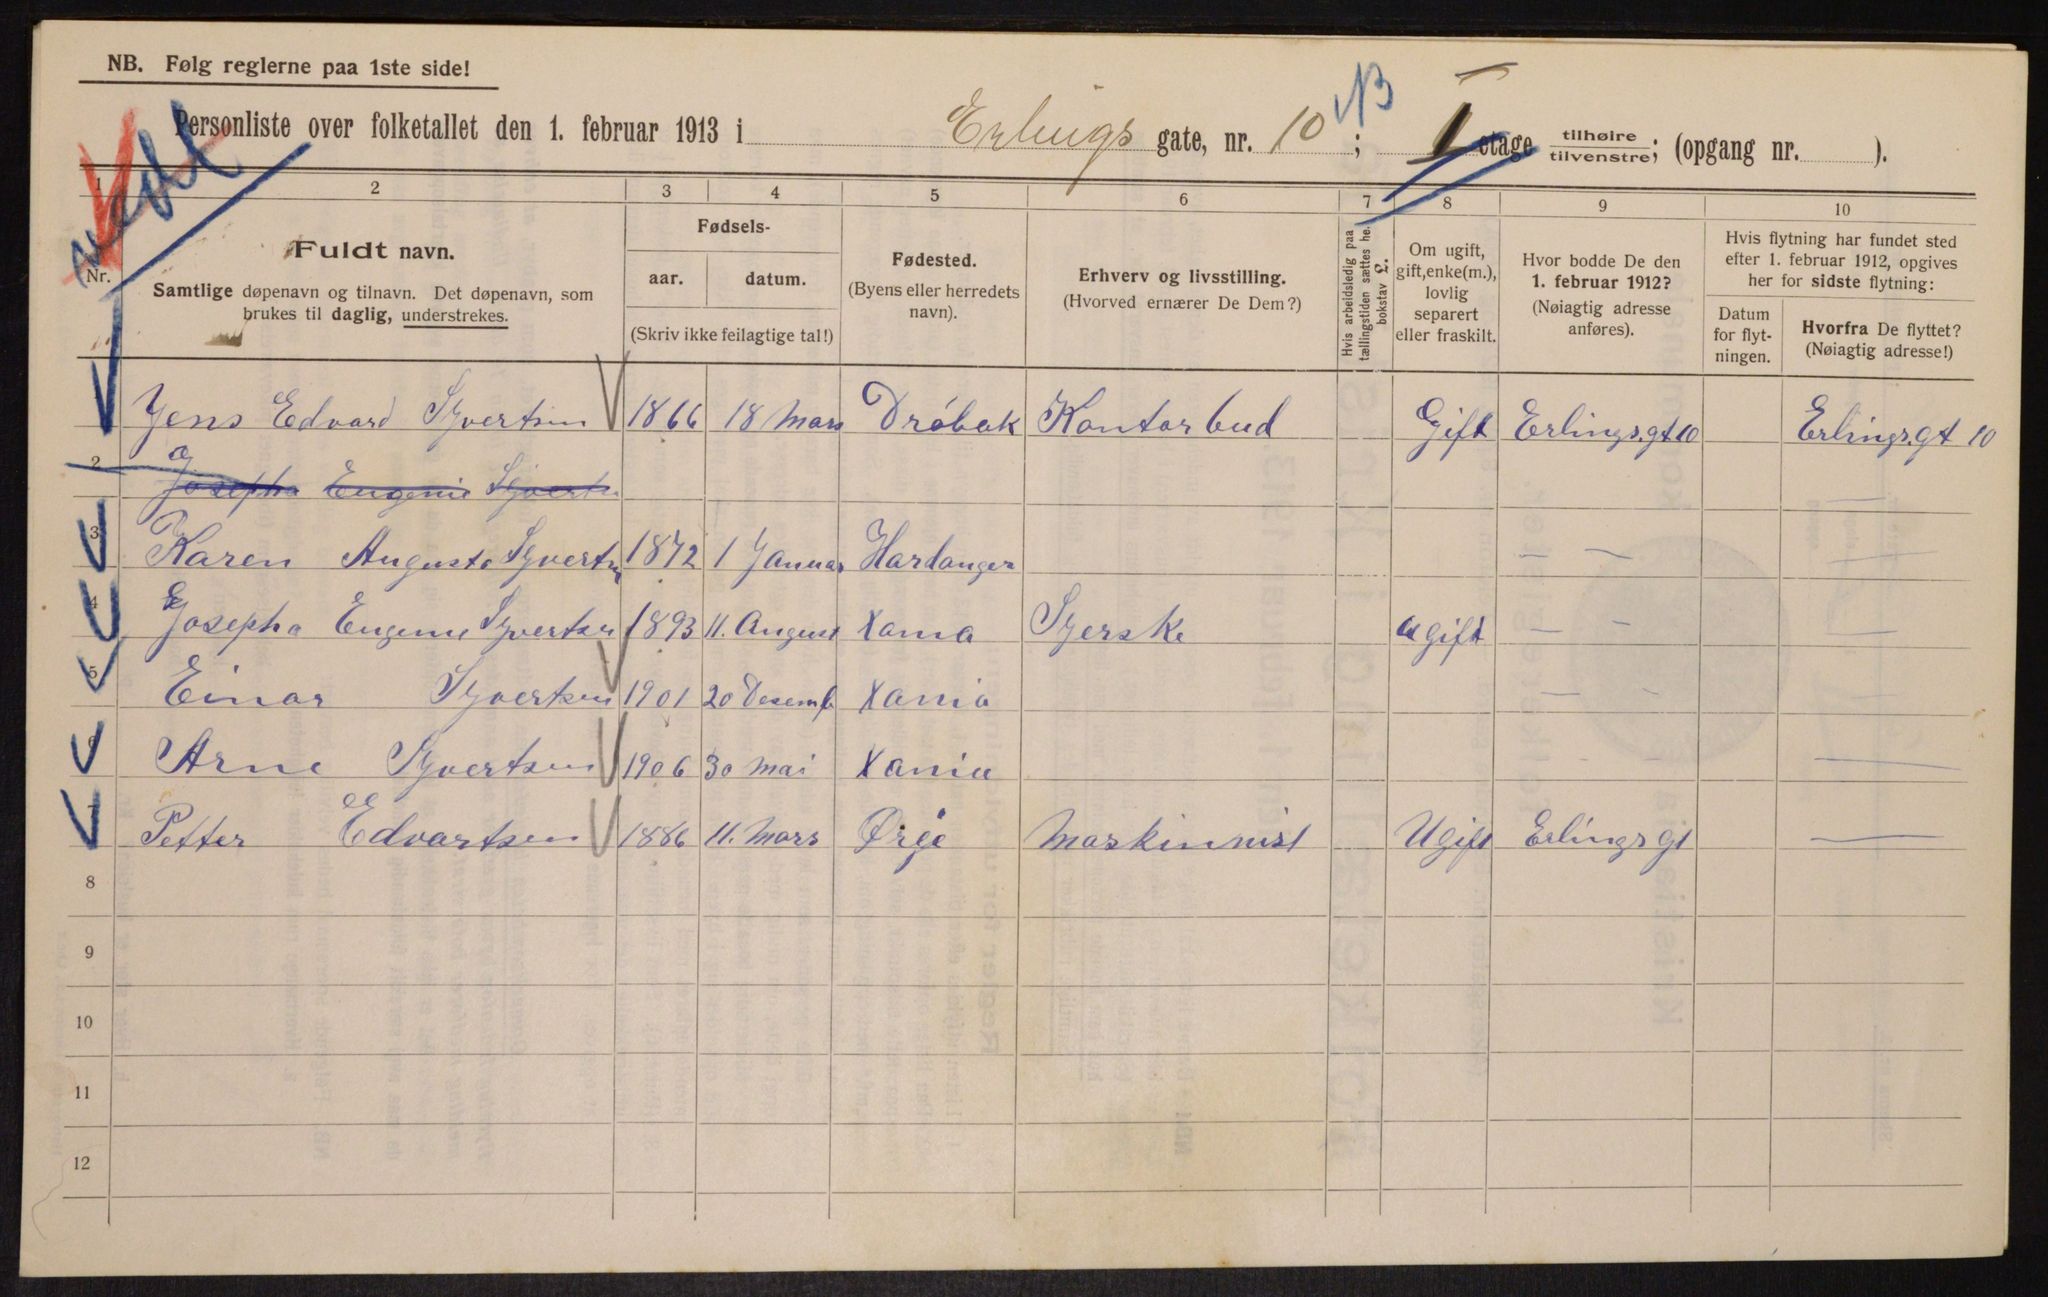 NB. Følg reglerne paa 1ste side!
Personliste over folketallet den 1. februar 1913 i Erlings gate, nr. 10; I etage tilhøire/tilvenstre; (opgang nr. ).
1 2 3 4 5 6 7 8 9 10
Nr.
Fuldt navn.
Samtlige døpenavn og tilnavn. Det døpenavn, som
brukes til daglig, understrekes.
Fødsels-
aar. datum.
(Skriv ikke feilagtige tal!)
Fødested.
(Byens eller herredets
navn).
Erhverv og livsstilling.
(Hvorved ernærer De Dem?)
Hvis arbeidsledig paa
tællingstiden sættes her
bokstav £.
Om ugift,
gift, enke(m.),
lovlig
separert
eller fraskilt.
Hvor bodde De den
1. februar 1912?
(Nøiagtig adresse
anføres).
Hvis flytning har fundet sted
efter 1. februar 1912, opgives
her for sidste flytning:
Datum
for flyt-
ningen.
Hvorfra De flyttet?
(Nøiagtig adresse!)
Jens Edvard Syvertsen 1866 18 Mars Drøbak Kontorbud Gift Erlings.gt 10 Erlings.gt 10
2 Josepha Eugenie Syverts
3 Karen Augusta Syvertsn 1872 1 Januar Hardanger — —
4 Josepha Eugenie Syvertsen 1893 11. August Xania Syerske ugift — —
5 Einar Syvertsen 1901 20 Desemb Xania — —
6 Arne Syvertsen 1906 30 Mai Xania
7 Petter Edvartsen 1886 11. Mars Ørje Maskinnist Ugift Erlings gt
8
9
10
11
12